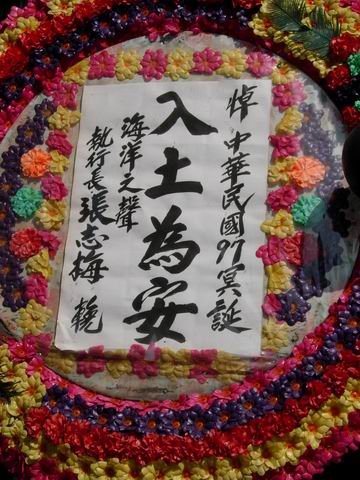 悼中華民國97冥誕
入土為安
海洋之聲
執行長張志梅輓